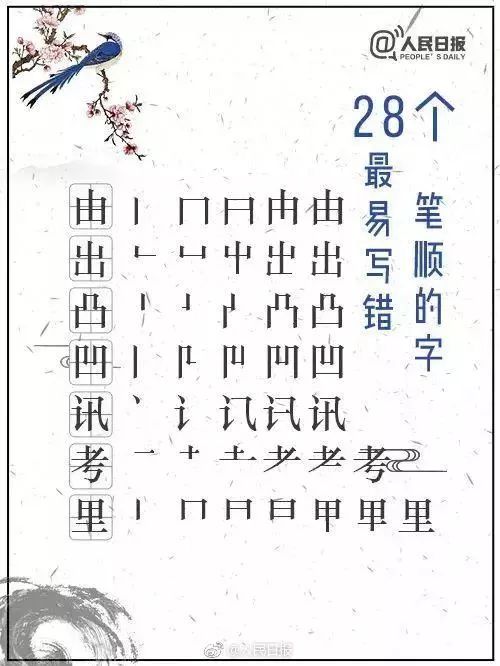 @人民日报
PEOPLE'S DAILY
28个
最易写错
笔顺的字
由 丨 冂 冃 由 由
出 凵 屮 出 出
凸 丨 凸 凸
凹 丨 凹 凹
讯 丶 讠 讯 讯
考 一 十 土 耂 耂 考
里 丨 冂 日 日 甲 甲 里
@人民日报